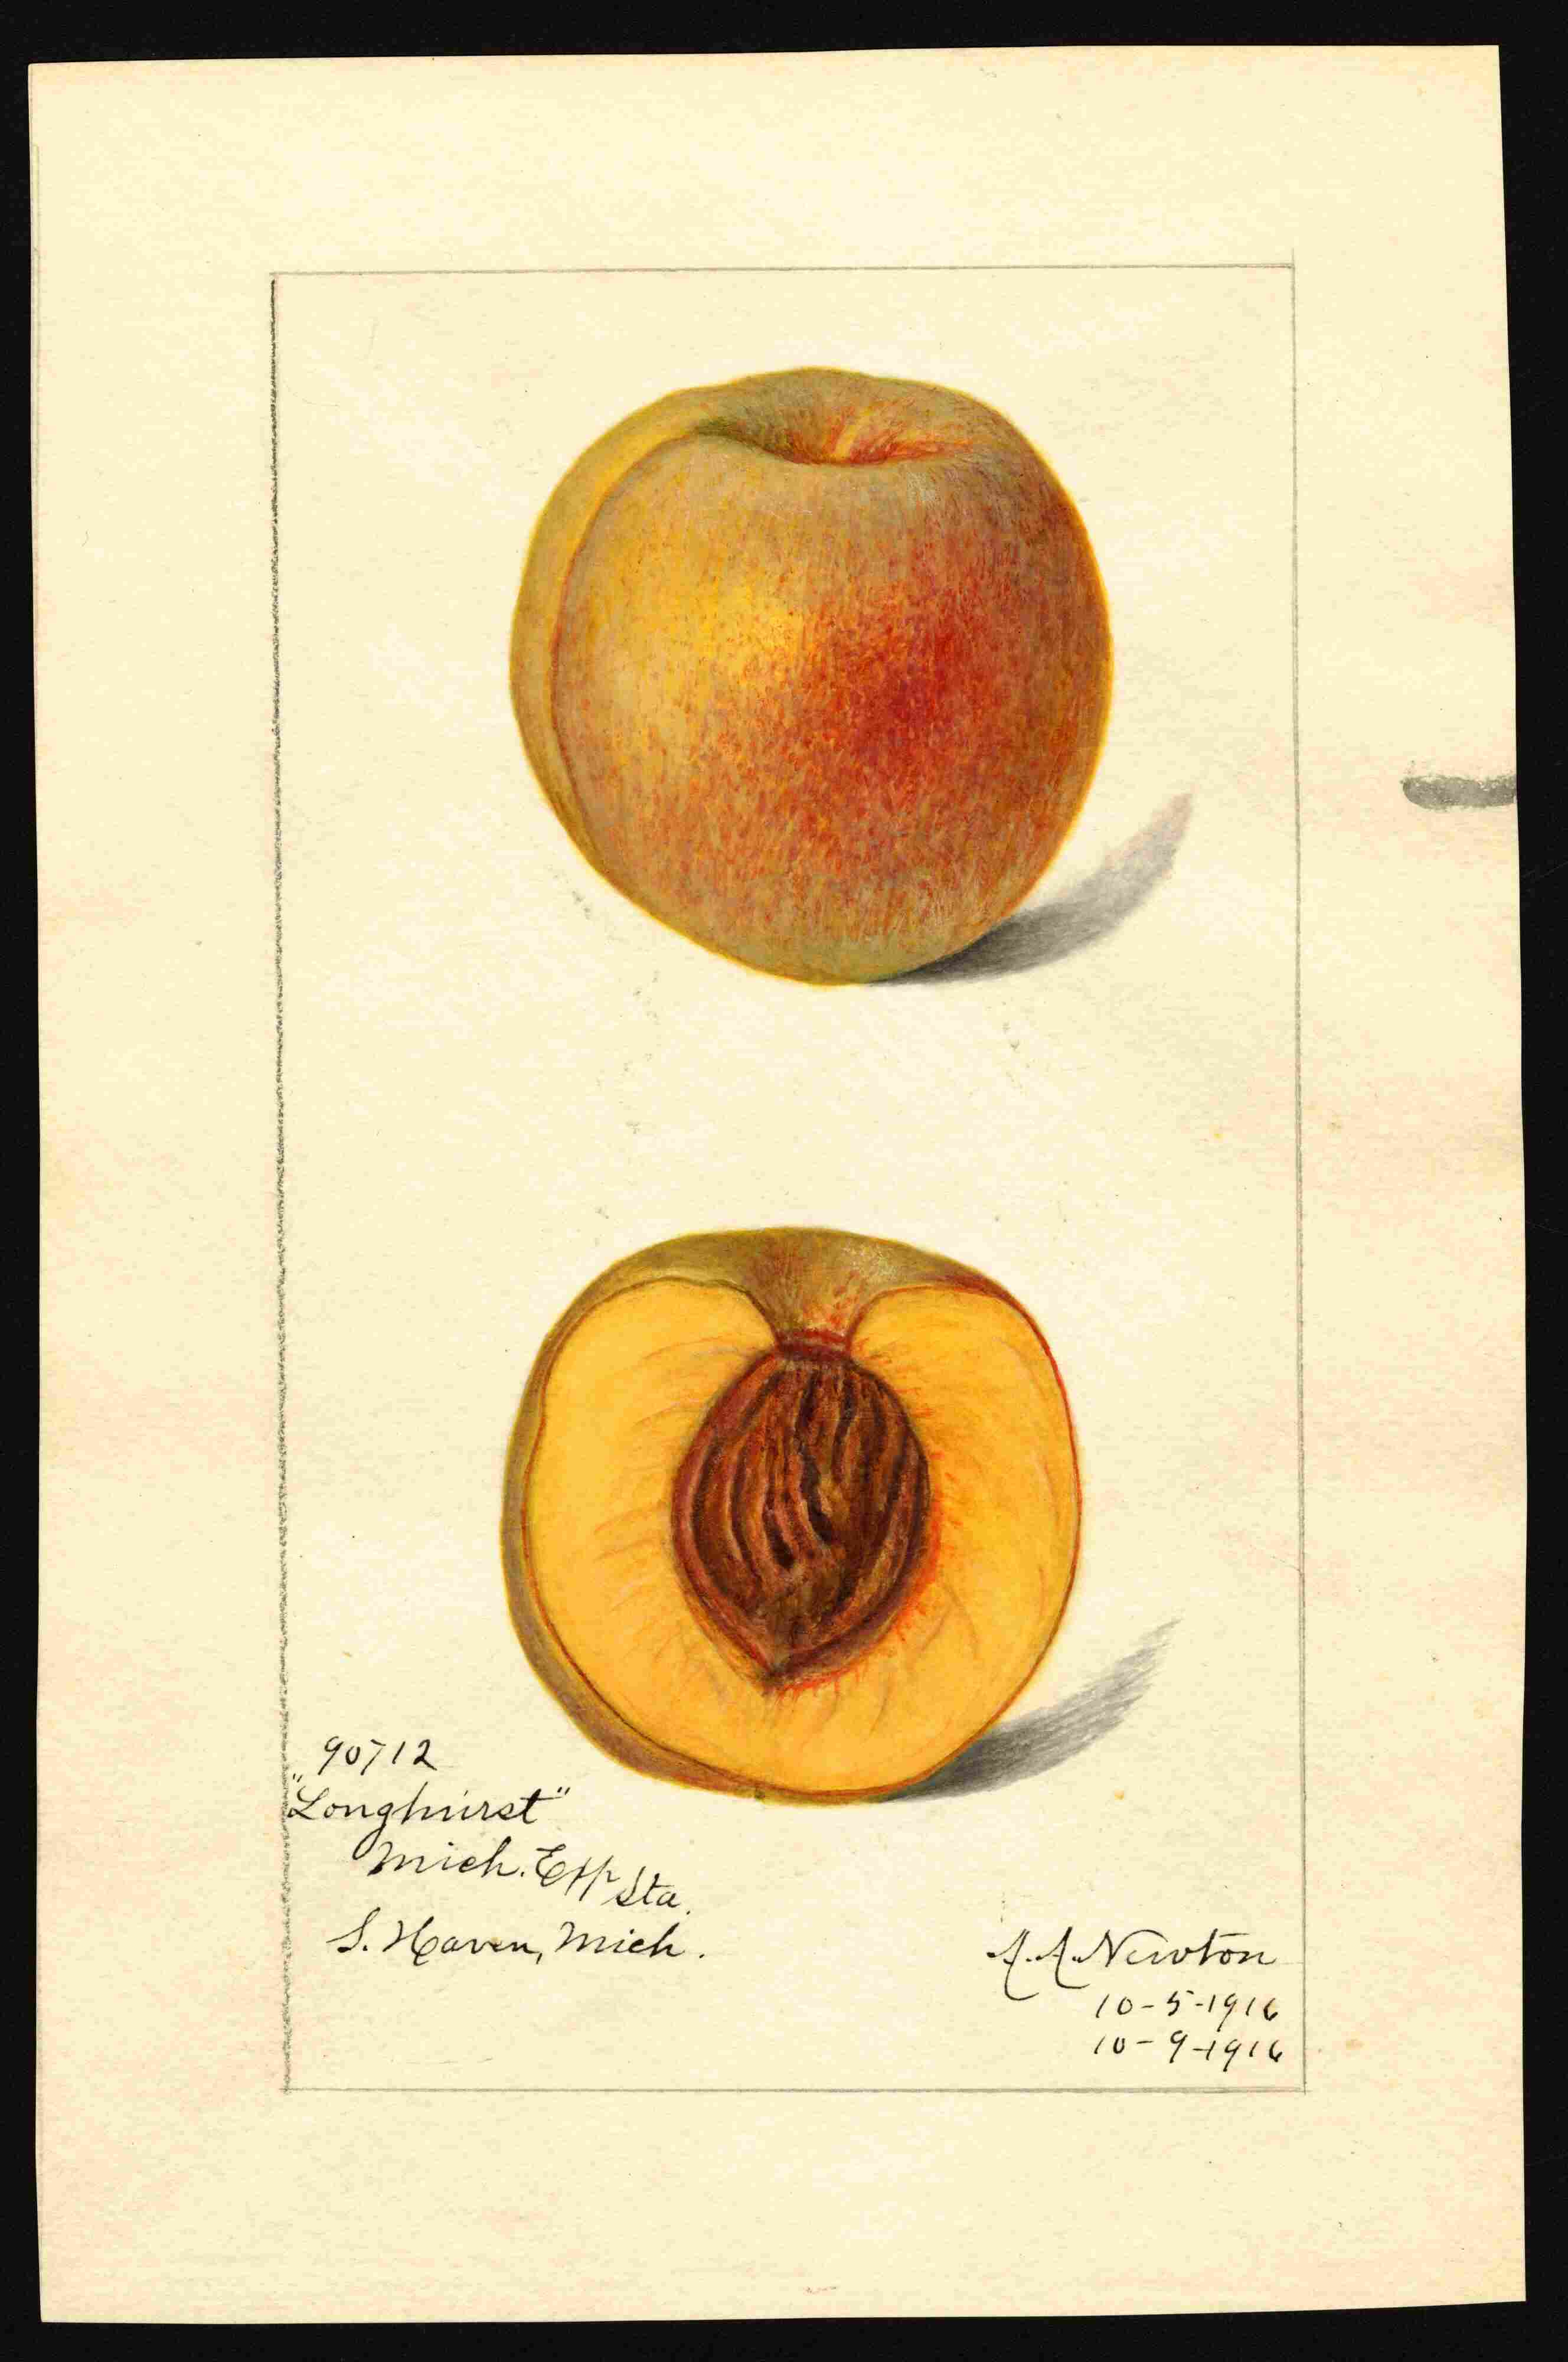 90712
"Longhurst"
Mich. Exp Sta.
S. Haven, Mich.
A. A. Newton
10-5-1916
10-9-1916